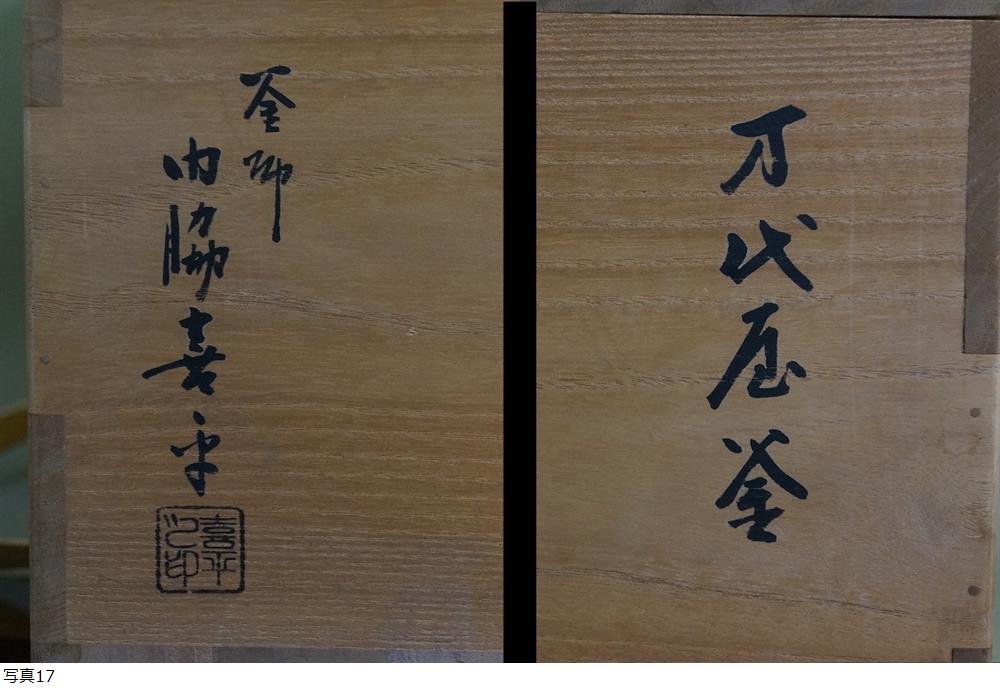 万代屋釜
釜師
内脇喜平
喜平
之印
写真17